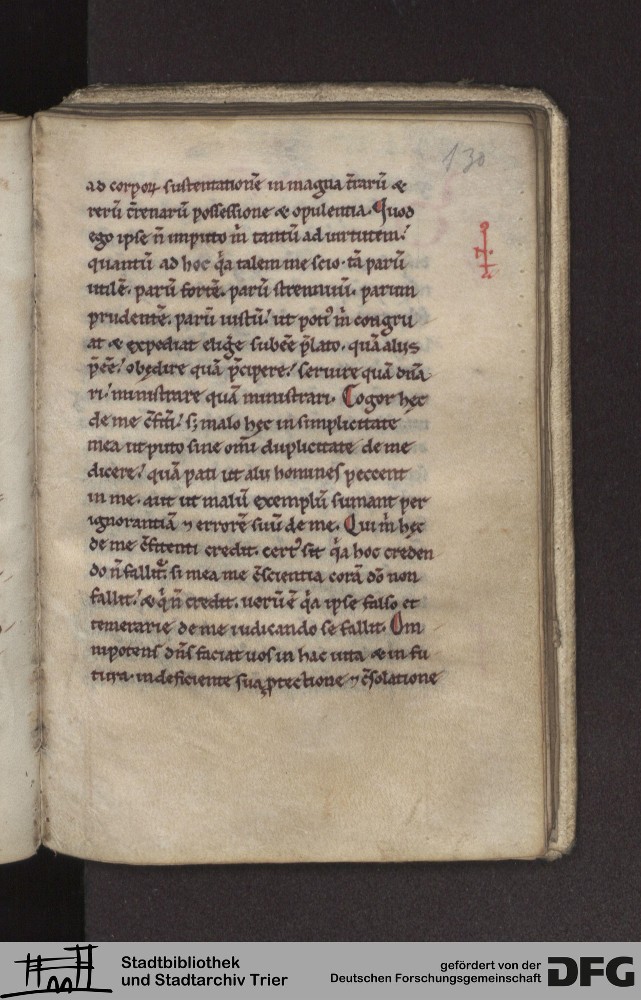 130
ad corpoꝝ sustentationē in magna t̄rarū &
rerū t̄renarū possessione & opulentia. Quod
ego ipse n̄ imputo m̍ tantū ad uirtutem!
quantū ad hoc q̍a talem me scio. tā parū
utilē. parū fortē. parū strennuū. parum
prudentē. parū iustū! ut poti᷒ m̍ congru
at & expediat elig̍e subeē p̄lato. quā aliis
p̄eē! obędire quā p̄cipere! seruire quā dn̄a
ri! ministrare quā ministrari. Cogor hęc
de me c̄fit̍i! s; malo hęc in simplicitate
mea ut puto sine om̄i duplicitate de me
dicere! quā pati ut alii homines peccent
in me. aut ut malū exemplū sumant per
ignorantiā ⁊ errorē suū de me. Qui m̍ hęc
de me c̄fitenti credit. cert᷒ sit q̍a hoc creden
do n̄ fallit᷑. si mea me c̄scientia corā dō non
fallit! & q̍ n̄ credit. uerū ē q̍a ipse falso et
temerarie de me iudicando se fallit. Om
nipotens dn̄s faciat uos in hac uita & in fu
tura. indeficiente sua ꝓtectione ⁊ c̄solatione
Stadtbibliothek
und Stadtarchiv Trier
gefördert von der
Deutschen Forschungsgemeinschaft
DFG